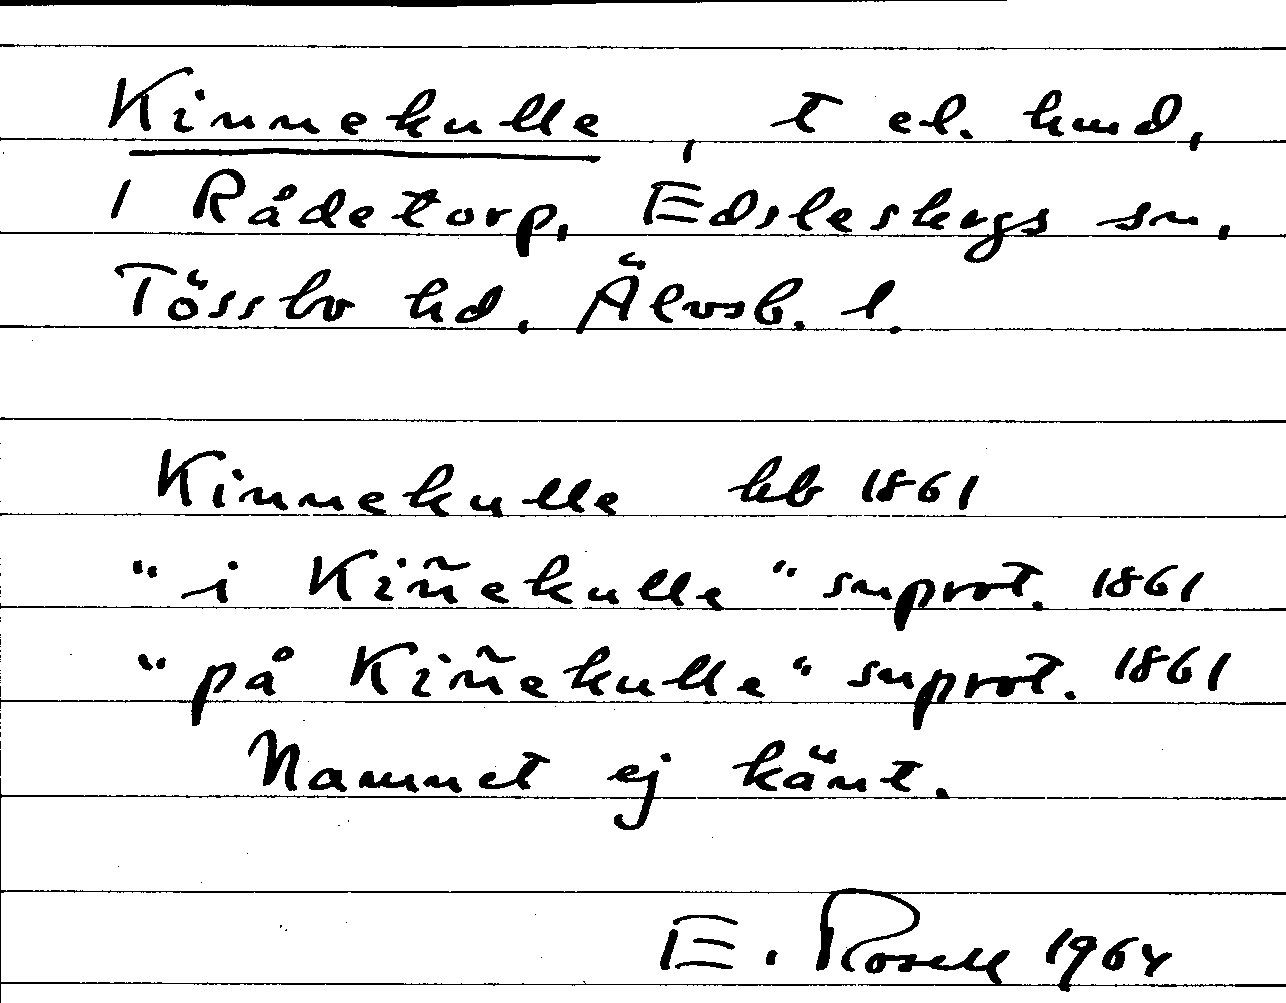 Kinnekulle, t el. hmd,
i Rådetorp, Edsleskogs sn,
Tössbo hd, Älvsb. l.
Kinnekulle hb 1861
"i Kiñekulle" snprot. 1861
"på Kiñekulle" snprot. 1861
Namnet ej känt.
E. Rosell 1964